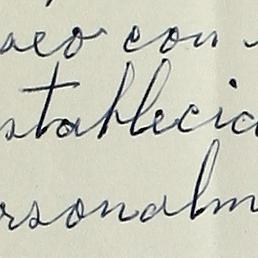 aeo con
stablecid
rsonalm